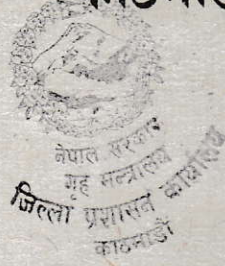 नेपाल सरकार
गृह मन्त्रालय
जिल्ला प्रशासन कार्यालय
काठमाडौं